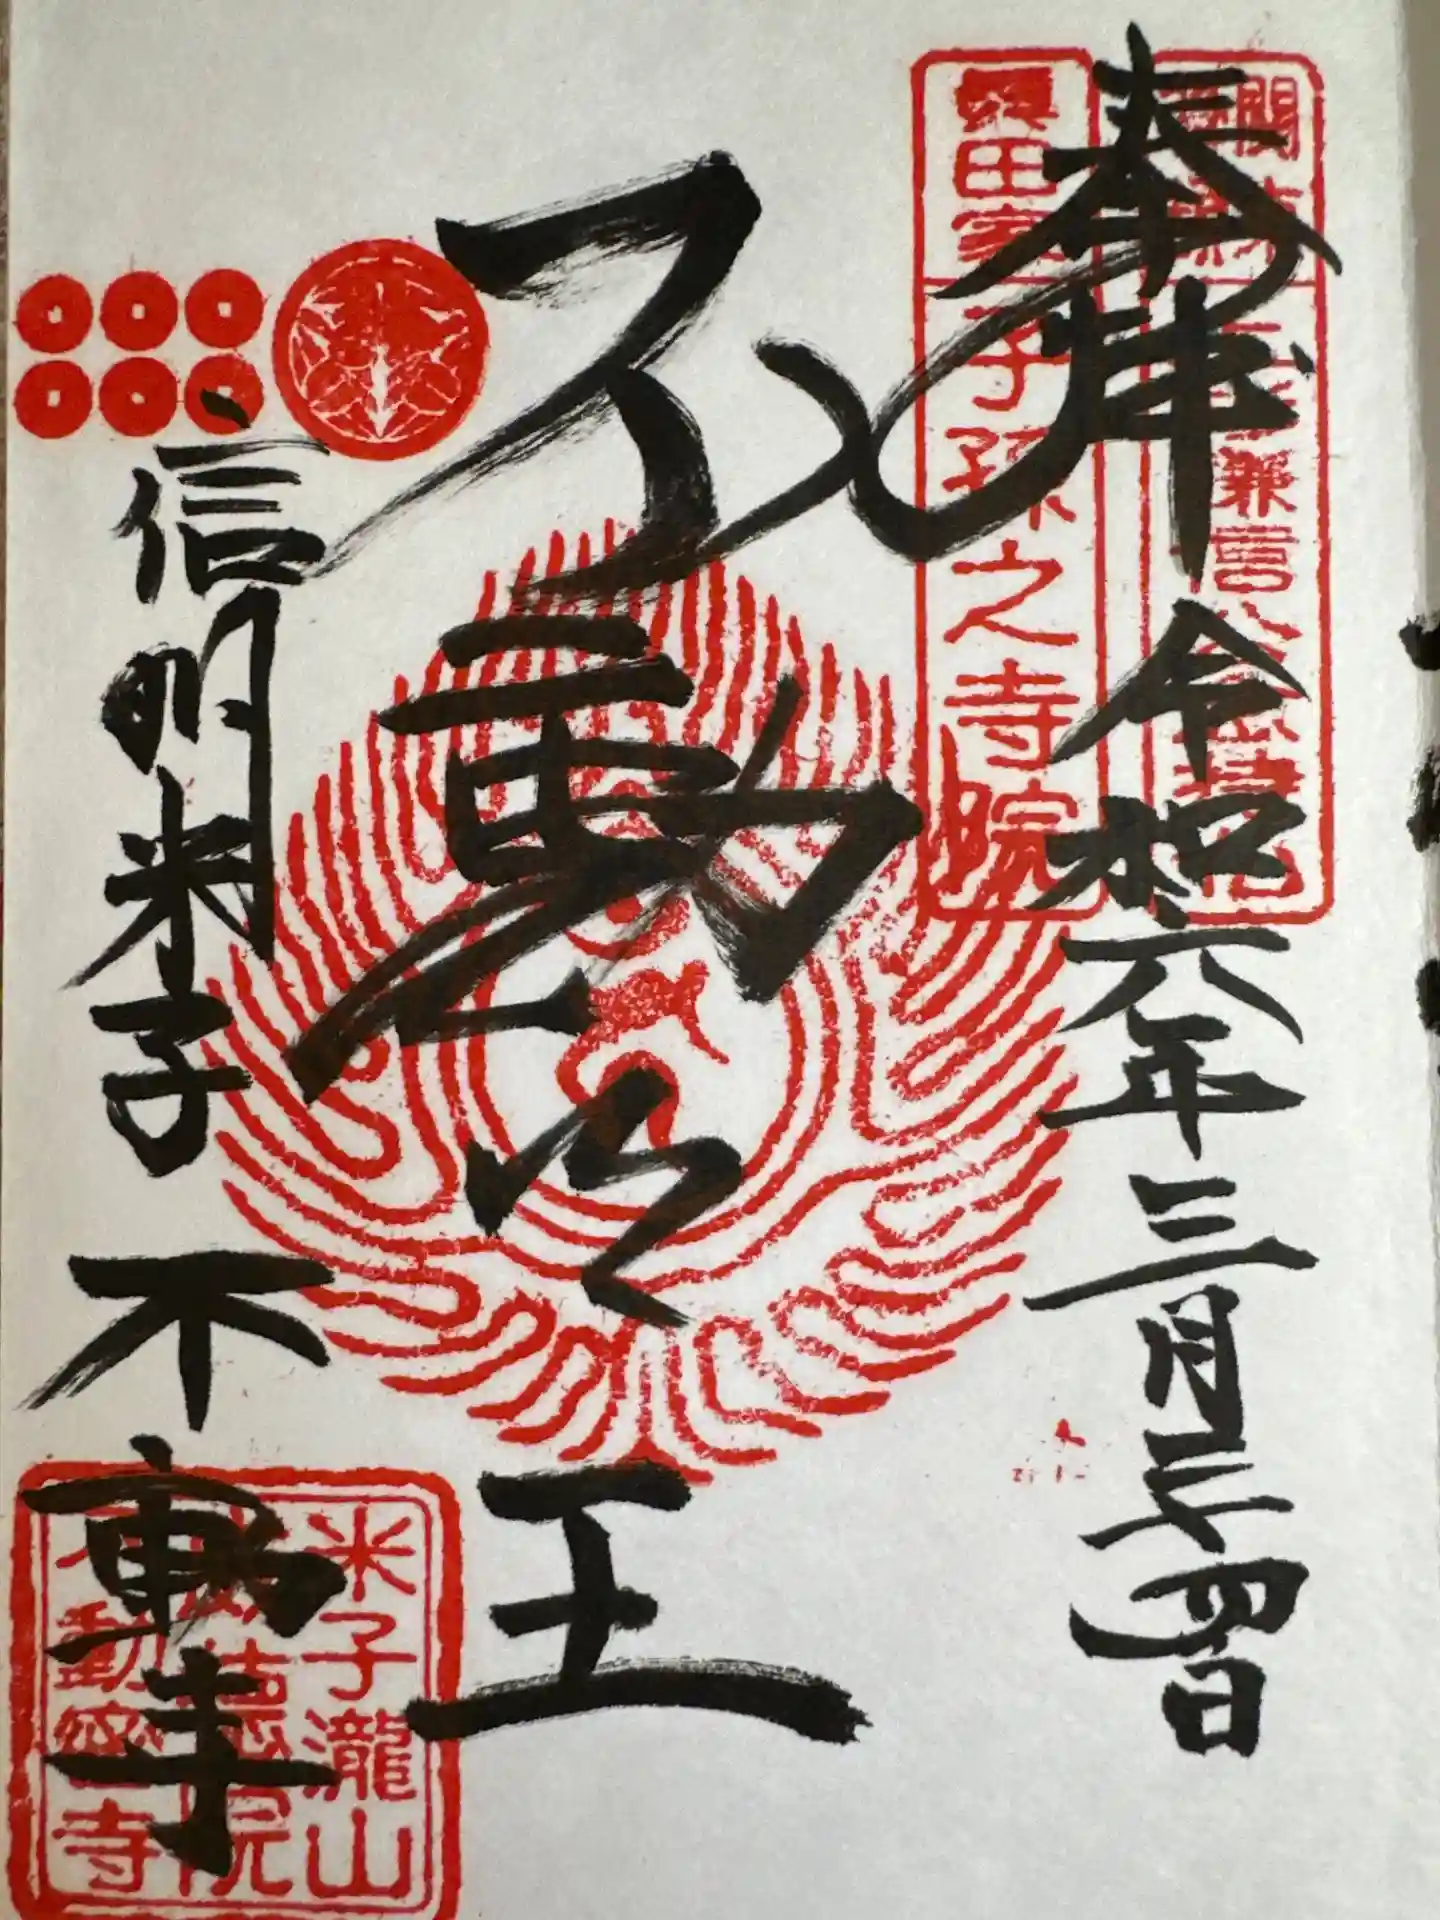 奉拝 令和六年三月二十四日
真田家 子孫之寺院
不動明王
信州米子 不動寺
米子瀧山